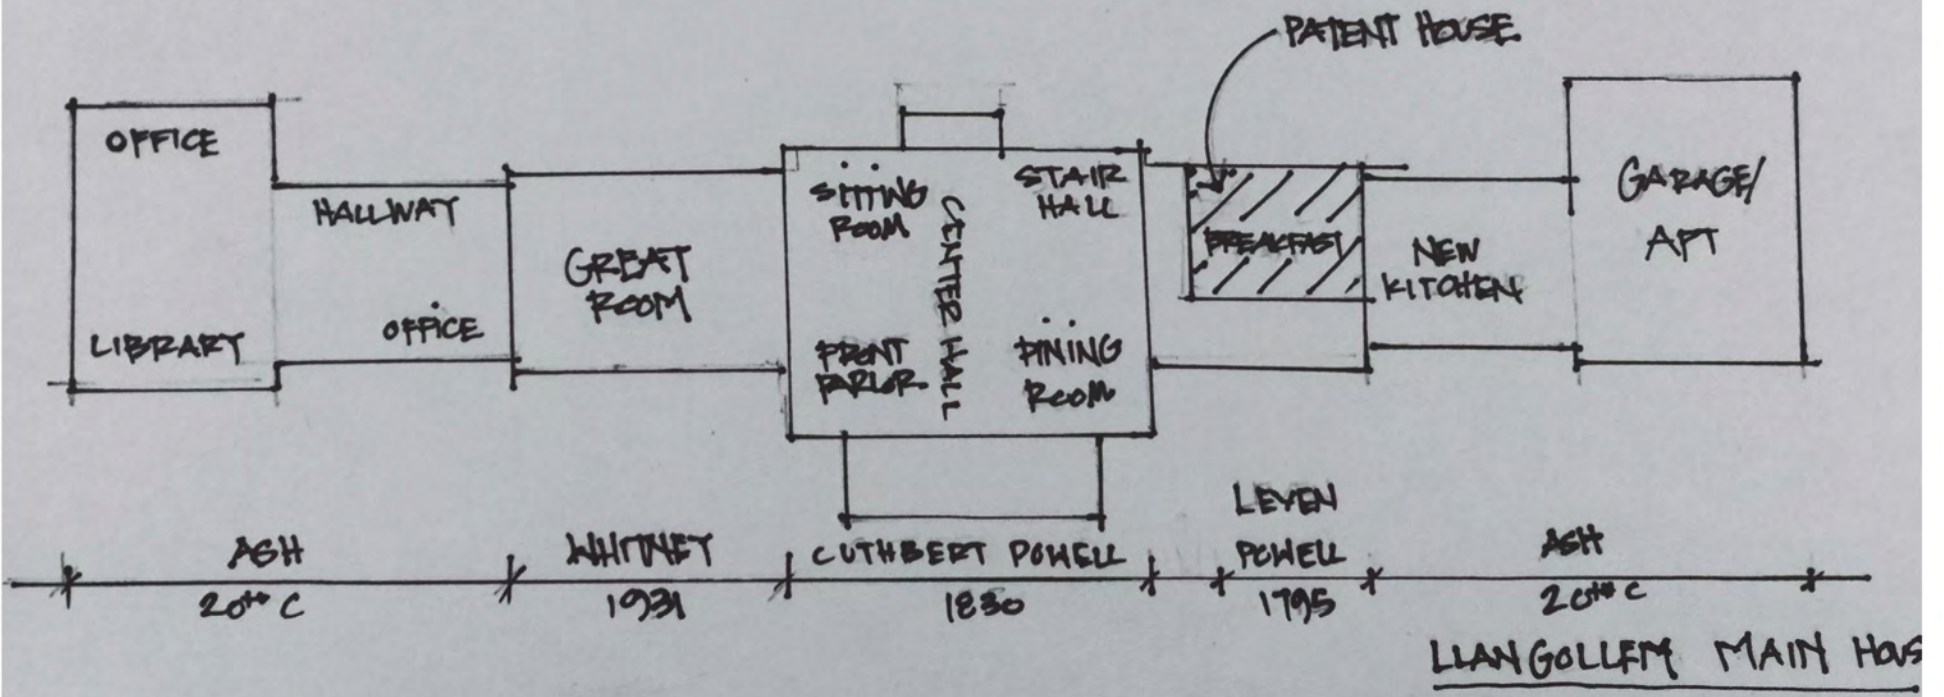 PATENT HOUSE
OFFICE
HALLWAY
OFFICE
LIBRARY
GREAT
ROOM
SITTING
ROOM
CENTER HALL
STAIR
HALL
FRONT
PARLOR
DINING
ROOM
BREAKFAST
NEW
KITCHEN
GARAGE/
APT
ASH
20th C
WHITNEY
1931
CUTHBERT POWELL
1830
LEVEN
POWELL
1795
ASH
20th C
LLANGOLLEM MAIN HOUS